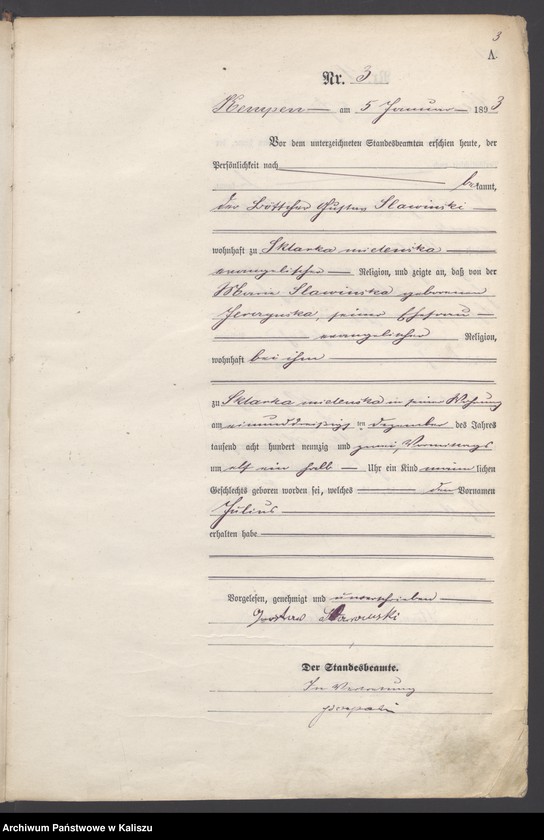 3
A.
Nr. 3
Kempen am 5 Januar 1893
Vor dem unterzeichneten Standesbeamten erschien heute, der
Persönlichkeit nach
bekannt,
der Böttcher Gustav Slawinski
wohnhaft zu Sklarka mielenska
evangelischer Religion, und zeigte an, daß von der
Maria Slawinska geborenen
seiner Ehefrau
evangelischer Religion,
wohnhaft bei ihm
zu Sklarka mielenska in seiner Wohnung
am einunddreißigsten Dezember des Jahres
tausend acht hundert neunzig und zwei, Vormittags
um elf ein halb Uhr ein Kind männlichen
Geschlechts geboren worden sei, welches den Vornamen
Julius
erhalten habe
Vorgelesen, genehmigt und unterschrieben
Gustav Slawinski
Der Standesbeamte.
In Vertretung
Archiwum Państwowe w Kaliszu